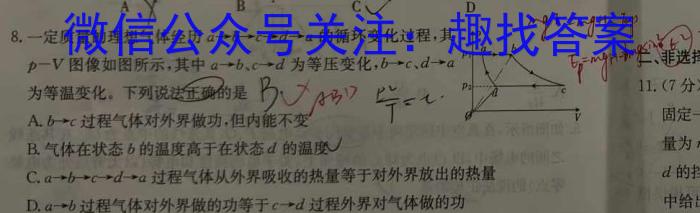 A B C D
微信公众号关注：趣找答案
8.一定质量的理想气体经历a→b→c→d→a的循环变化过程,其
p-V图像如图所示,其中a→b、c→d为等压变化,b→c、d→a
为等温变化。下列说法正确的是
A.b→c过程气体对外界做功,但内能不变
B.气体在状态b的温度高于在状态d的温度
C.a→b→c→d→a过程气体从外界吸收的热量等于对外界放出的热量
D.a→b过程气体对外做的功等于c→d过程外界对气体做的功
B
ABD
a b
p₂ d c
O V
二、非选择
11.(7分
固定一
量为
d的挡
中给